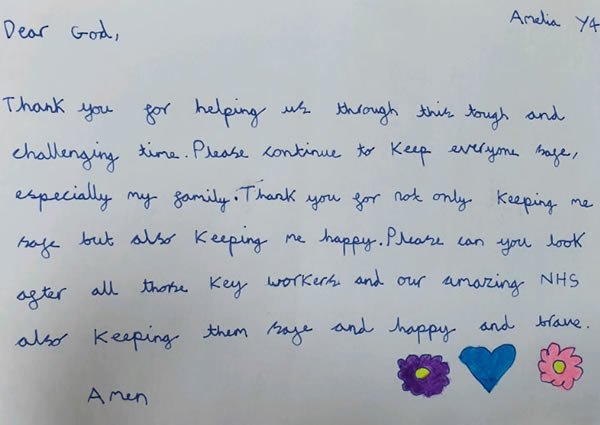 Amelia Y4
Dear God,
Thank you for helping us through this tough and
challenging time. Please continue to keep everyone safe,
especially my family. Thank you for not only keeping me
safe but also keeping me happy. Please can you look
after all those key workers and our amazing NHS
also keeping them safe and happy and brave.
Amen